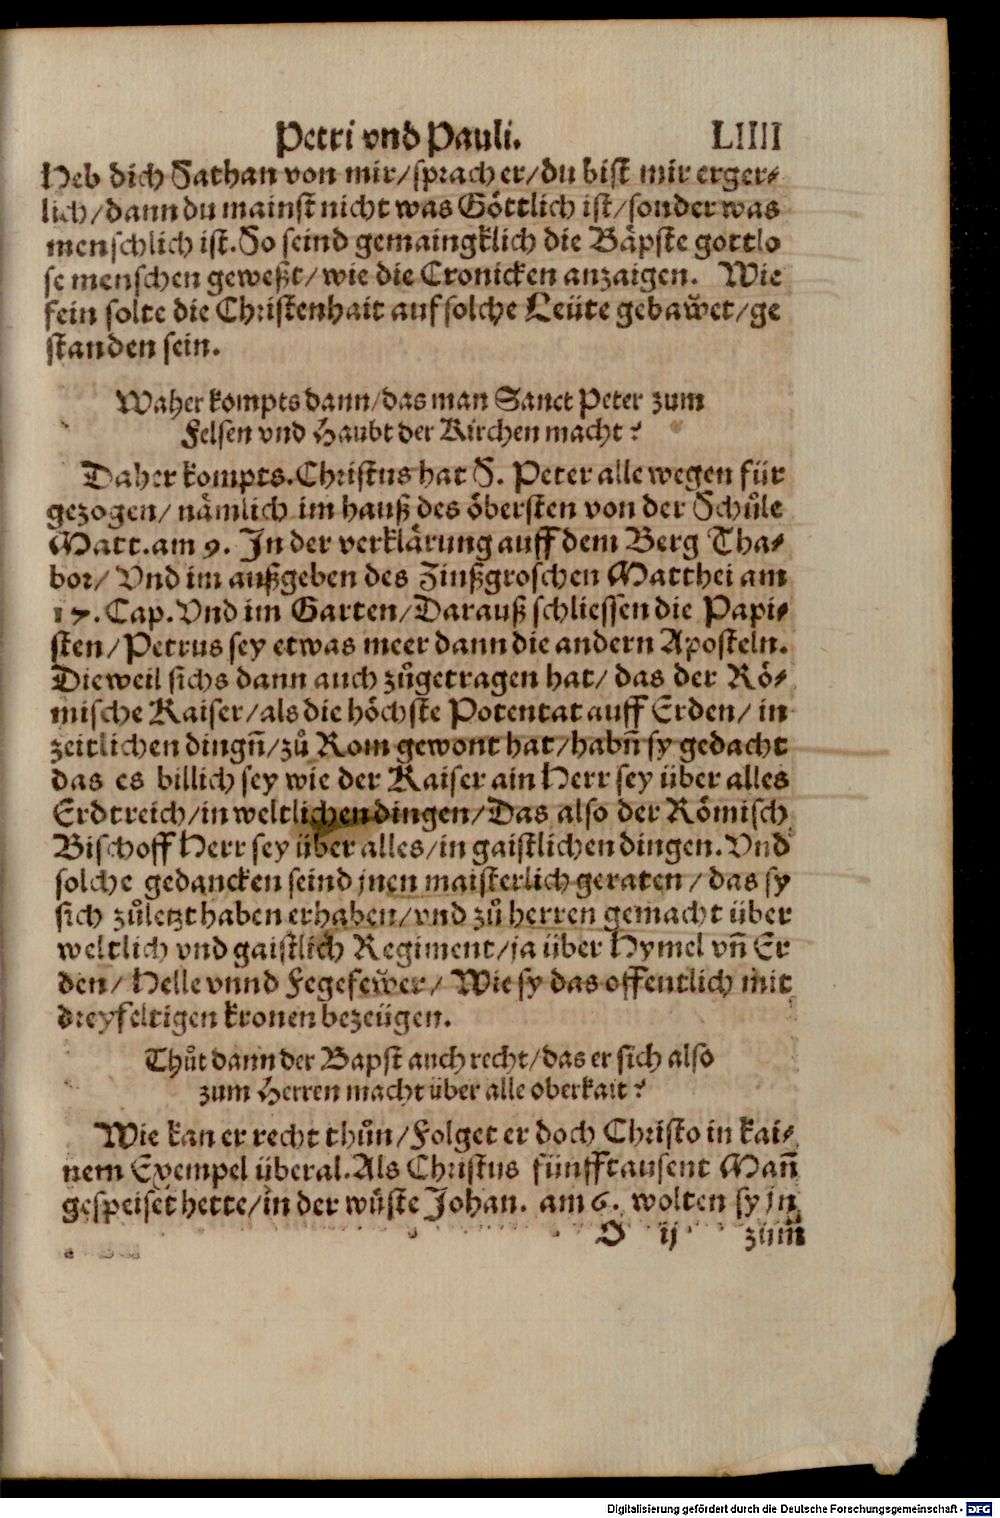 Petri vnd Pauli. LIIII
Heb dich Sathan von mir/sprach er/du bist mir erger-
lich/dann du mainst nicht was Göttlich ist/sonder was
menschlich ist. So seind gemaingklich die Bäpste gottlo
se menschen geweßt/wie die Cronicken anzaigen. Wie
fein solte die Christenhait auf solche Leüte gebawͤet/ge
standen sein.
Waher kompts dann/das man Sanct Peter zum
Felsen vnd Haubt der Kirchen macht?
Daher kompts. Christus hat S. Peter alle wegen für
gezogen/ nämlich im hauß des öbersten von der Schůle
Matt. am 9. In der verklärung auff dem Berg Tha-
bor/ Vnd im außgeben des Zinßgroschen Matthei am
17. Cap. Vnd im Garten/Darauß schliessen die Papi-
sten/Petrus sey etwas meer dann die andern Aposteln.
Dieweil sichs dann auch zůgetragen hat/ das der Rö-
mische Kaiser/als die höchste Potentat auff Erden/ in
zeitlichen dingn̄/zů Rom gewont hat/habn̄ sy gedacht
das es billich sey wie der Kaiser ain Herr sey über alles
Erdtreich/in weltlichen dingen/Das also der Römisch
Bischoff Herr sey über alles/in gaistlichen dingen. Vnd
solche gedancken seind jnen maisterlich geraten/das sy
sich zůletzt haben erhaben/vnd zů herren gemacht über
weltlich vnd gaistlich Regiment/ja über Hymel vn̄ Er
den/ Helle vnnd Fegefewͤer/ Wie sy das offentlich mit
dreyfeltigen kronen bezeügen.
Thůt dann der Bapst auch recht/das er sich also
zum Herren macht über alle oberkait?
Wie kan er recht thůn/Folget er doch Christo in kai-
nem Exempel überal. Als Christus fünfftausent Man̄
gespeiset hette/in der wüste Johan. am 6. wolten sy jn
O ij zum̄
Digitalisierung gefördert durch die Deutsche Forschungsgemeinschaft - DFG